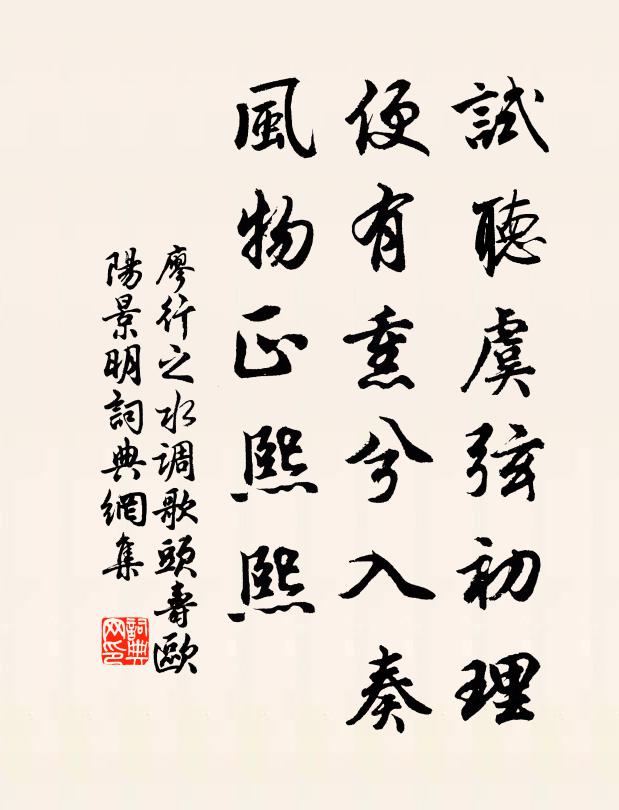 試聽虞弦初理
便有熏兮入奏
風物正熙熙
廖行之水调歌頭壽歐
陽景明詞典網集
詞典网印